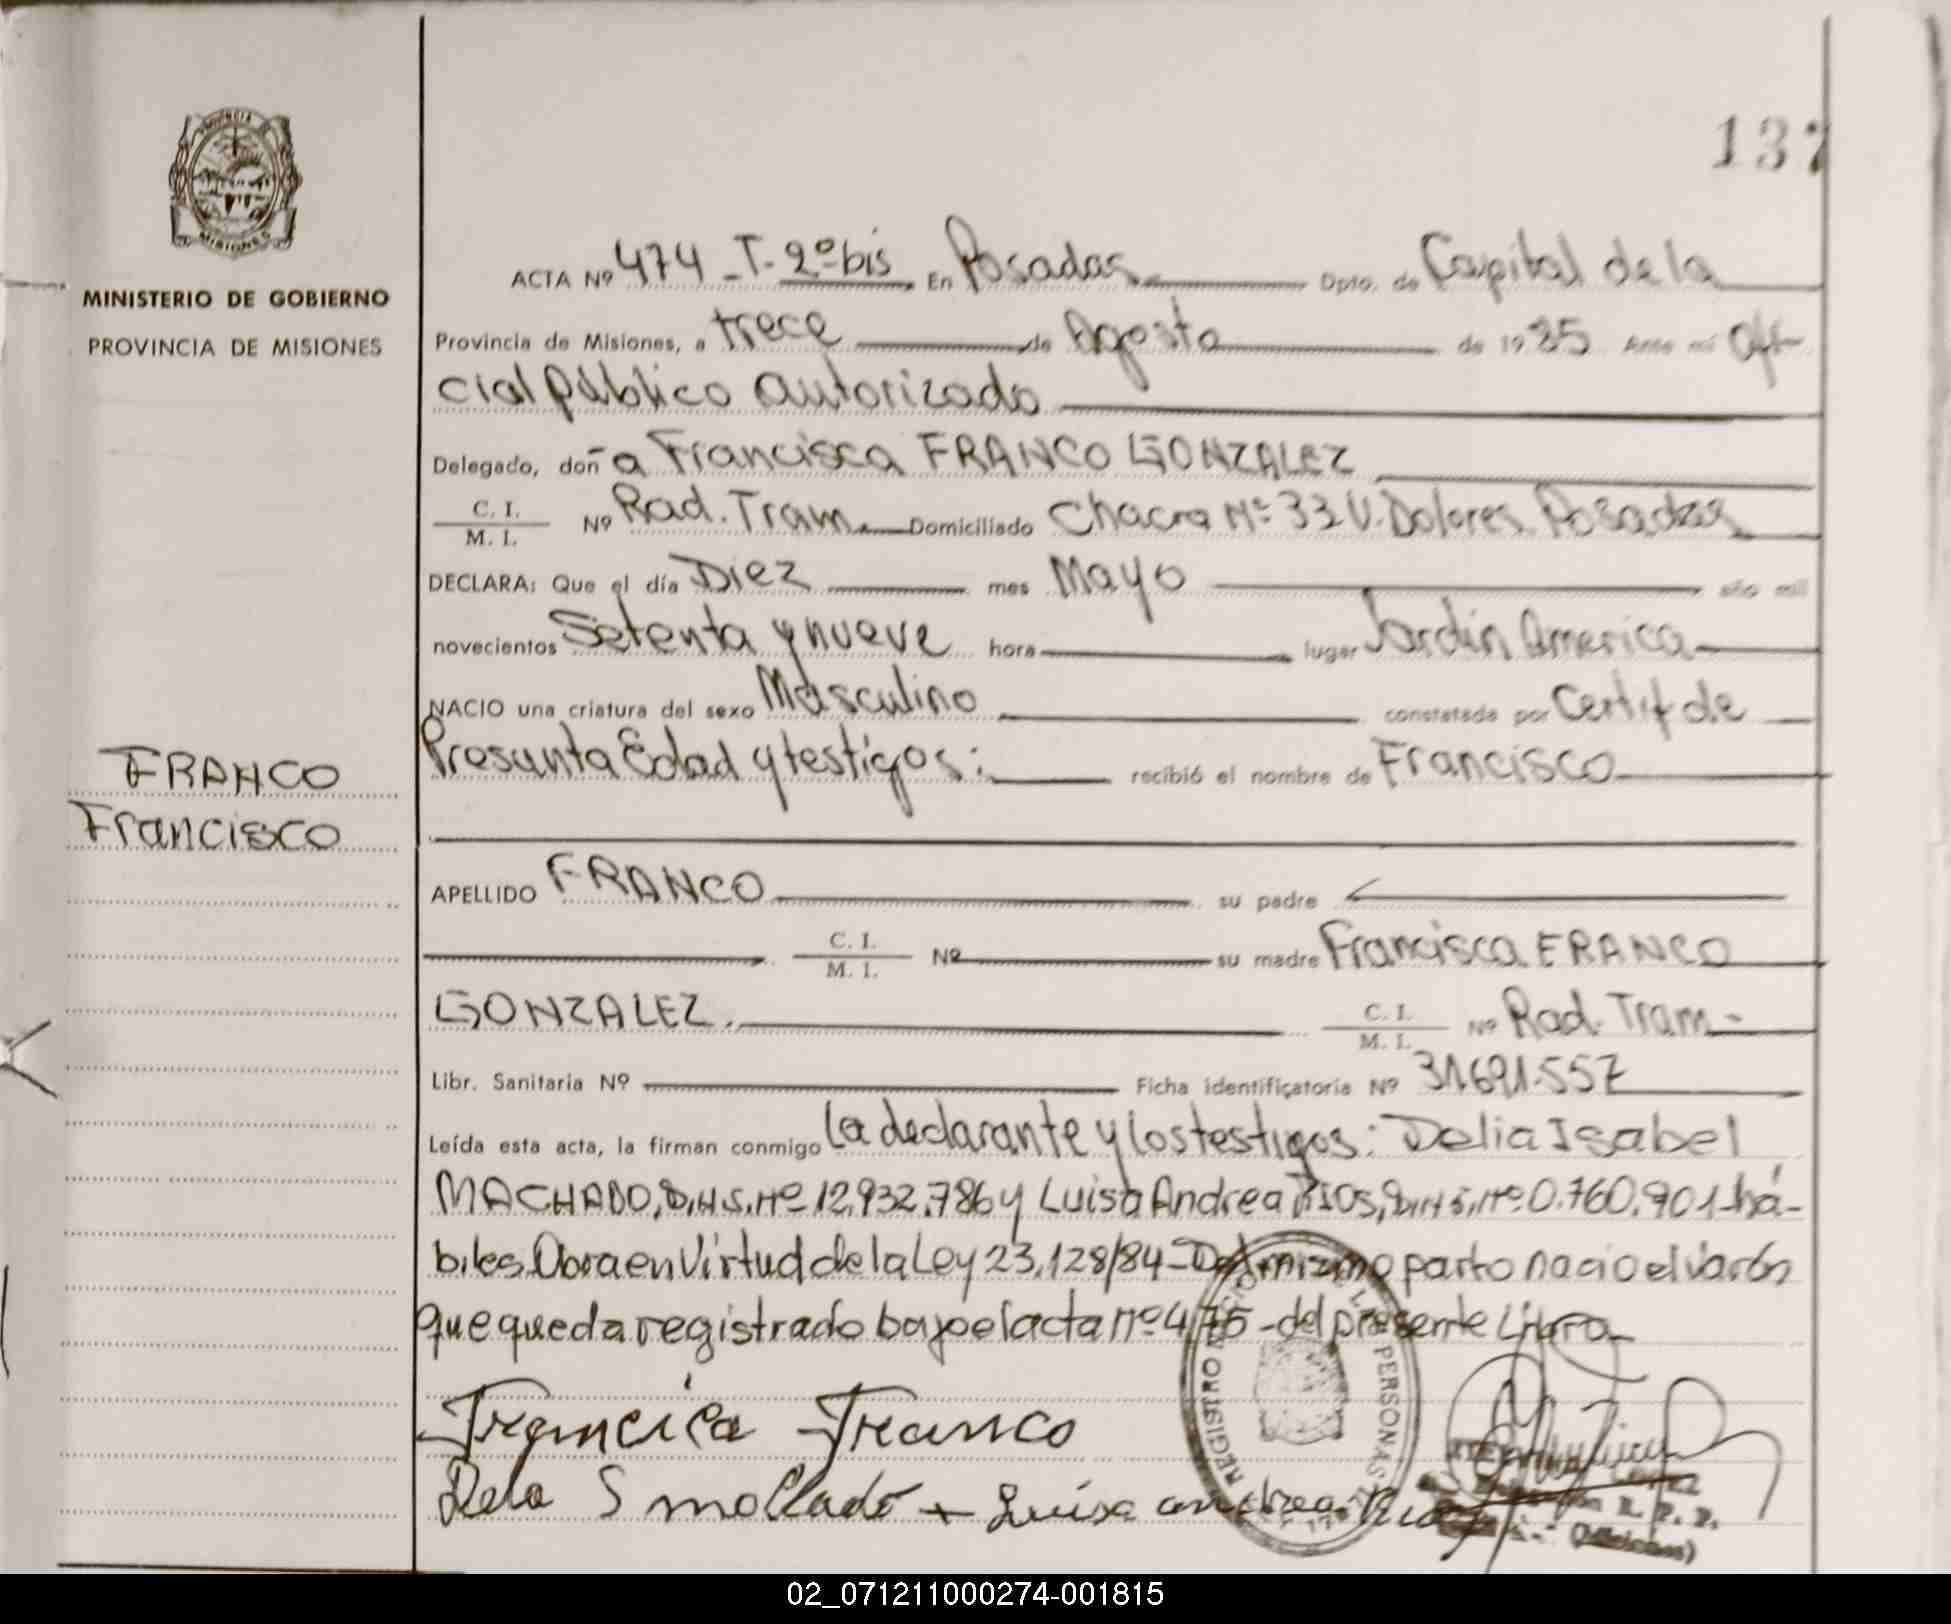 137
PROVINCIA
MISIONES
MINISTERIO DE GOBIERNO
PROVINCIA DE MISIONES
ACTA Nº 474 - T. 2º bis En Posadas Dpto. de Capital de la
Provincia de Misiones, a trece de Agosto de 19 85 Ante mi Ofi-
cial público autorizado
Delegado, doñ a Francisca FRANCO GONZALEZ
C. I.
M. I. Nº Rad. Tram. Domiciliado Chacra Nº 33 V. Dolores Posadas
DECLARA: Que el día Diez mes Mayo año mil
novecientos Setenta y nueve hora lugar Jardin America
NACIO una criatura del sexo Masculino constatada por Certif de
Presunta Edad y testigos: recibió el nombre de Francisco
FRANCO
Francisco
APELLIDO FRANCO su padre
C. I.
M. I. Nº su madre Francisca FRANCO
GONZALEZ. C. I.
M. I. Nº Rad. Tram-
Libr. Sanitaria Nº Ficha identificatoria Nº 31.691.557
Leída esta acta, la firman conmigo la declarante y los testigos: Delia Isabel
MACHADO, D.N.I. Nº 12.932.786 y Luisa Andrea RIOS, D.N.I. Nº 0.760.901 há-
biles. Obra en Virtud de la Ley 23.128/84 - Del mismo parto nacio el varón
que queda registrado bajo el acta Nº 475 - del presente Libro
Francica Franco
Luisa andrea Rios
REGISTRO PERSONAS
R. P. P.
(Misiones)
02_071211000274-001815